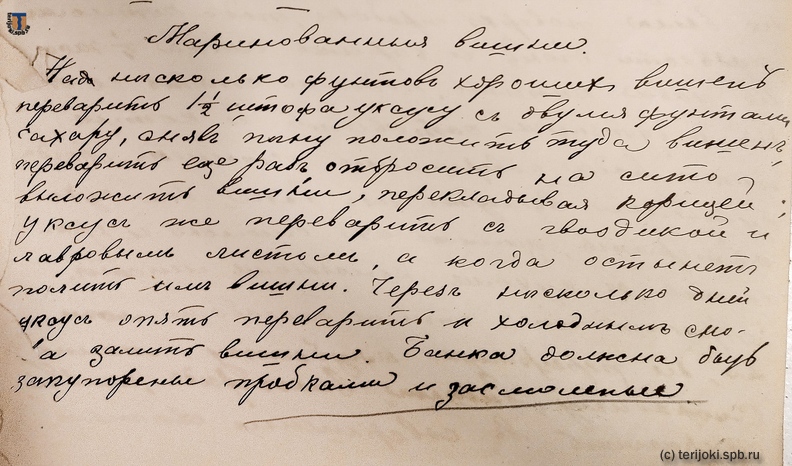 Маринованныя вишни.
Надо нысколько фунтовъ хорошихъ вишень
переварить 1½ штофа уксусу съ двумя фунтами
сахару, снявъ пыну положить туда вишень,
переварить еще разъ отбросить на сито,
выложить вишни, перекладывая корицей;
уксусъ же переварить съ гвоздикой и
лавровымъ листомъ, а когда остынетъ
полить имъ вишни. Черезъ нысколько дней
уксусъ опять переварить и холоднымъ сно-
'а залить вишни. Банка должна быть
закупорены пробками и засмолены.
(c) terijoki.spb.ru